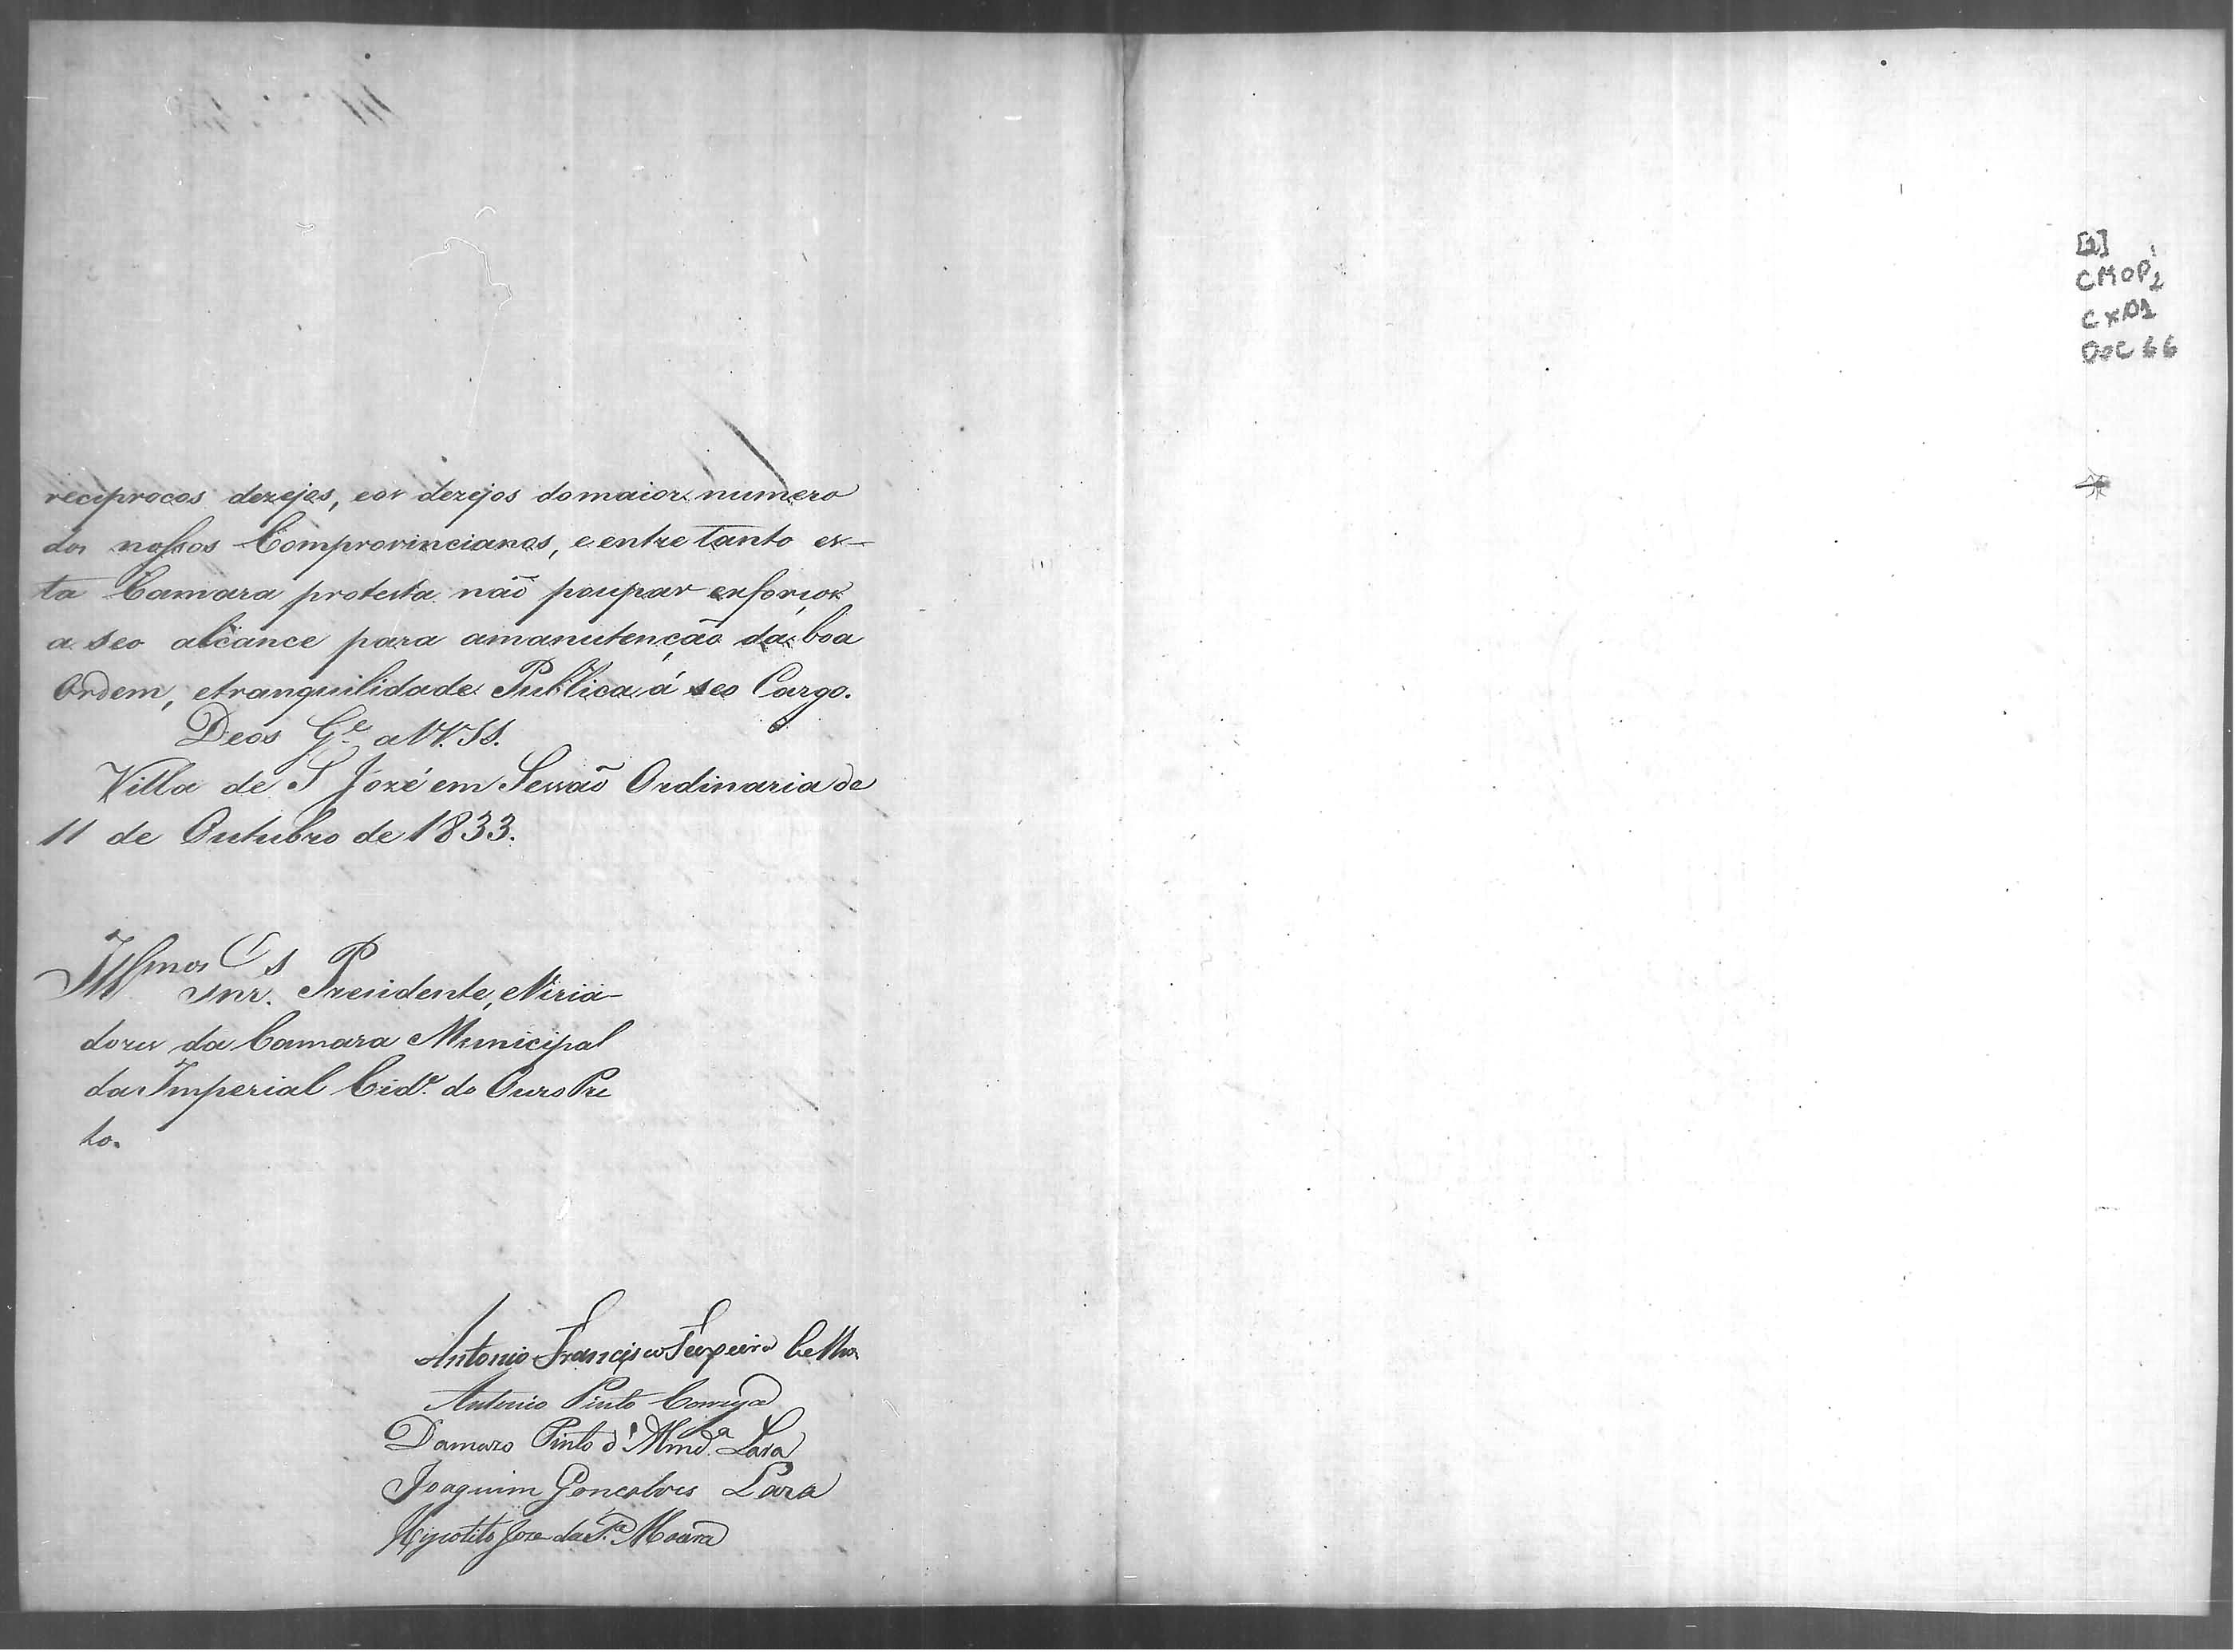 reciprocos dezejos, eos dezejos domaior numero
dos nossos Comprovincianos, e entre tanto es-
ta Camara protesta não poupar esforços
a seo alcance para amanutenção da boa
Ordem, etranquilidade Publica á seo Cargo.
Deos G.e a VV. SS.
Villa de S José em Sessão Ordinaria de
11 de Outubro de 1833.
Illmos Snrs. Presidente, eVeria-
dores da Camara Municipal
da Imperial Cid.e do Ouro Pre
to.
Antonio Francisco Teixeira Coelho
Antonio Pinto
Damazo Pinto d'Almd.a Lara
Joaquim Goncalves Lara
Hipolito Joze da S.a Moura
[1]
CMOP2
CX01
DOC 66